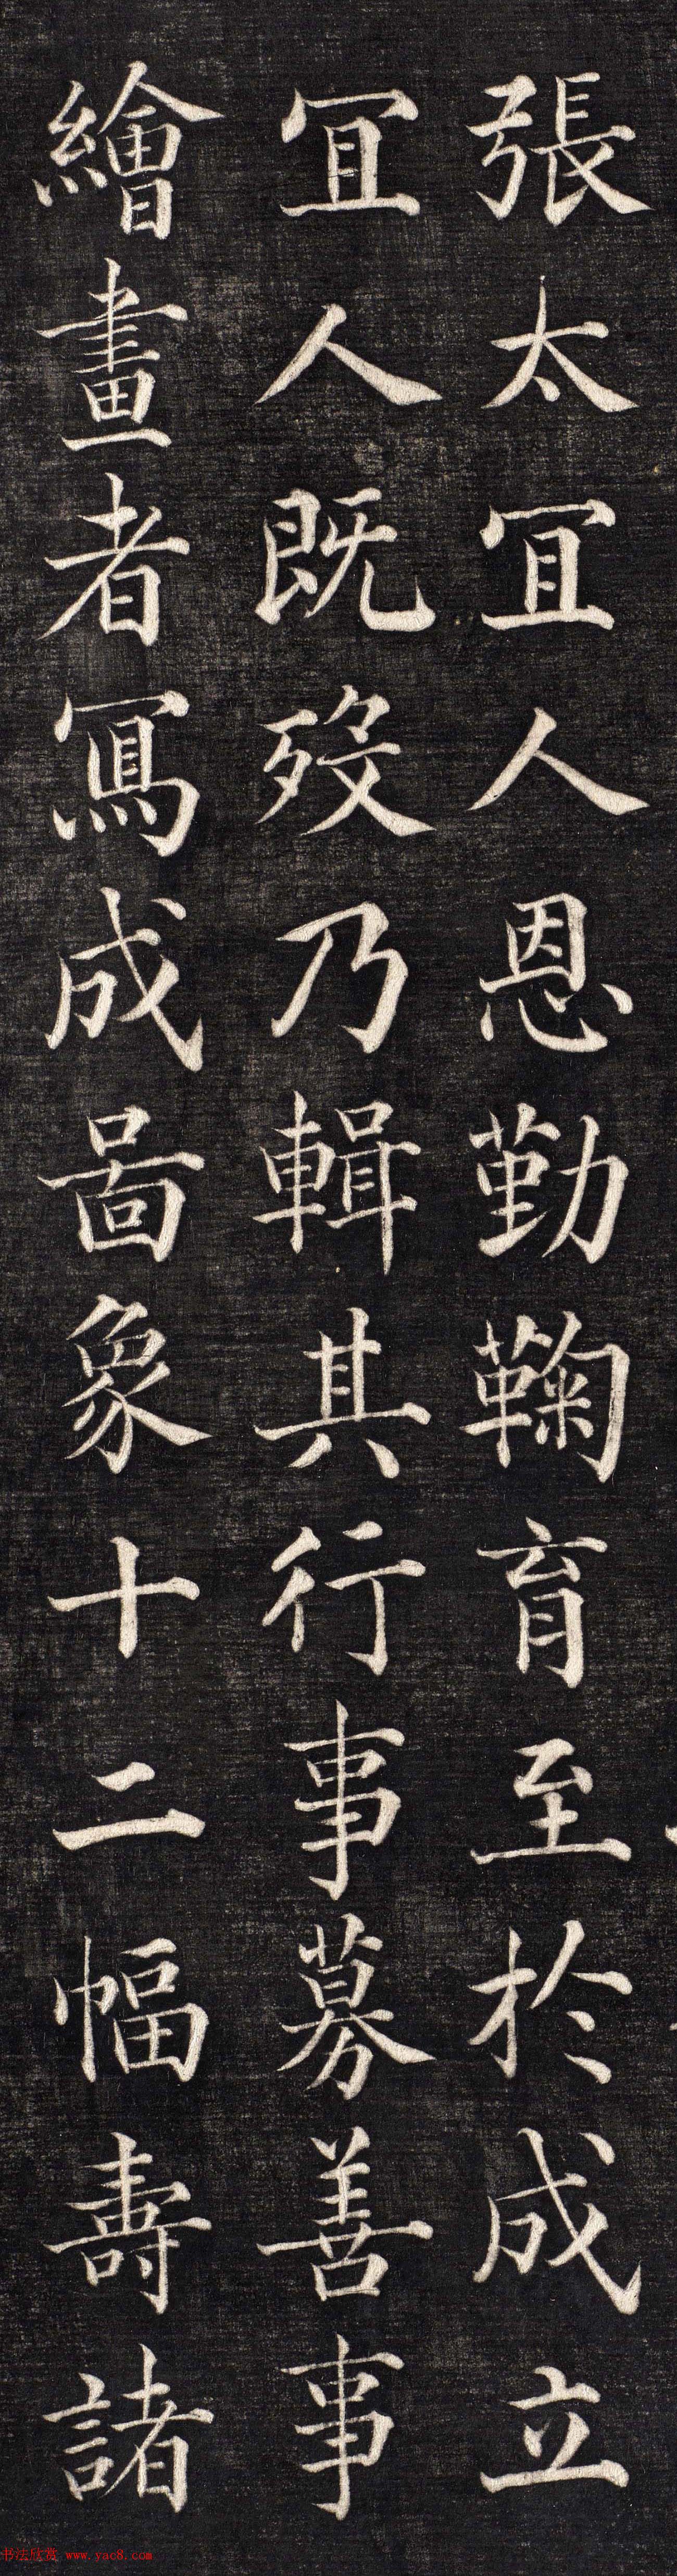 張太冝人恩勤鞠育至於成立
冝人既歿乃輯其行事募善事
繪畫者寫成啚象十二幅壽諸
书法欣赏 www.yac8.com